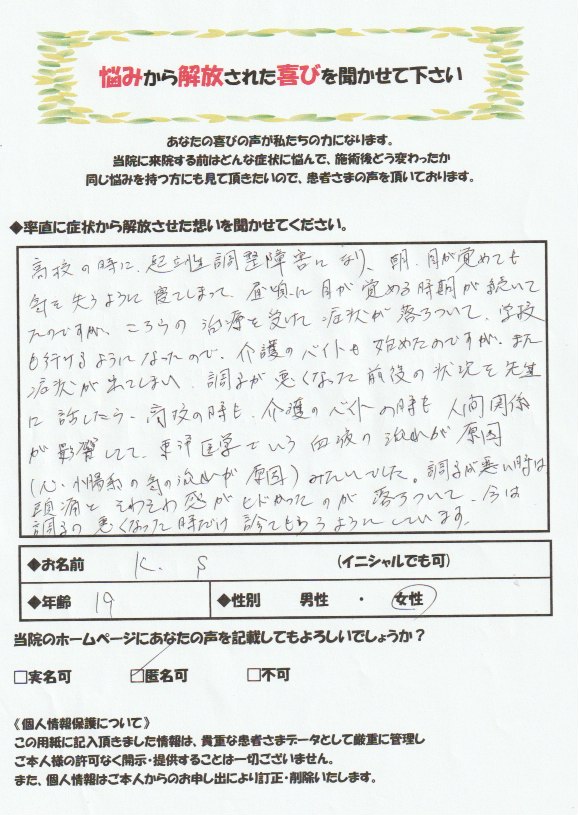 悩みから解放された喜びを聞かせて下さい
あなたの喜びの声が私たちの力になります。
当院に来院する前はどんな症状に悩んで、施術後どう変わったか
同じ悩みを持つ方にも見て頂きたいので、患者さまの声を頂いております。
◆率直に症状から解放させた想いを聞かせてください。
高校の時に、起立性調整障害になり、朝、目が覚めても
気を失うように寝てしまって、昼頃に目が覚める時期が続いて
たのですが、こちらの治療を受けて症状が落ちついて、学校
も行けるようになったので、介護のバイトも始めたのですが、また
症状が出てしまい、調子が悪くなった前後の状況を先生
に話したら、高校の時も、介護のバイトの時も人間関係
が影響してて、東洋医学でいう血液の流れが原因
(心・小腸系の気の流れが原因)みたいでした。調子が悪い時は
頭痛とそわそわ感がヒドかったのが落ちついて、今は
調子の悪くなった時だけ診てもらうようにしています。
◆お名前 K. S (イニシャルでも可)
◆年齢 19 ◆性別 男性 ・ 女性
当院のホームページにあなたの声を記載してもよろしいでしょうか？
□実名可 □匿名可 □不可
《個人情報保護について》
この用紙に記入頂きました情報は、貴重な患者さまデータとして厳重に管理し
ご本人様の許可なく開示・提供することは一切ございません。
また、個人情報はご本人からのお申し出により訂正・削除いたします。